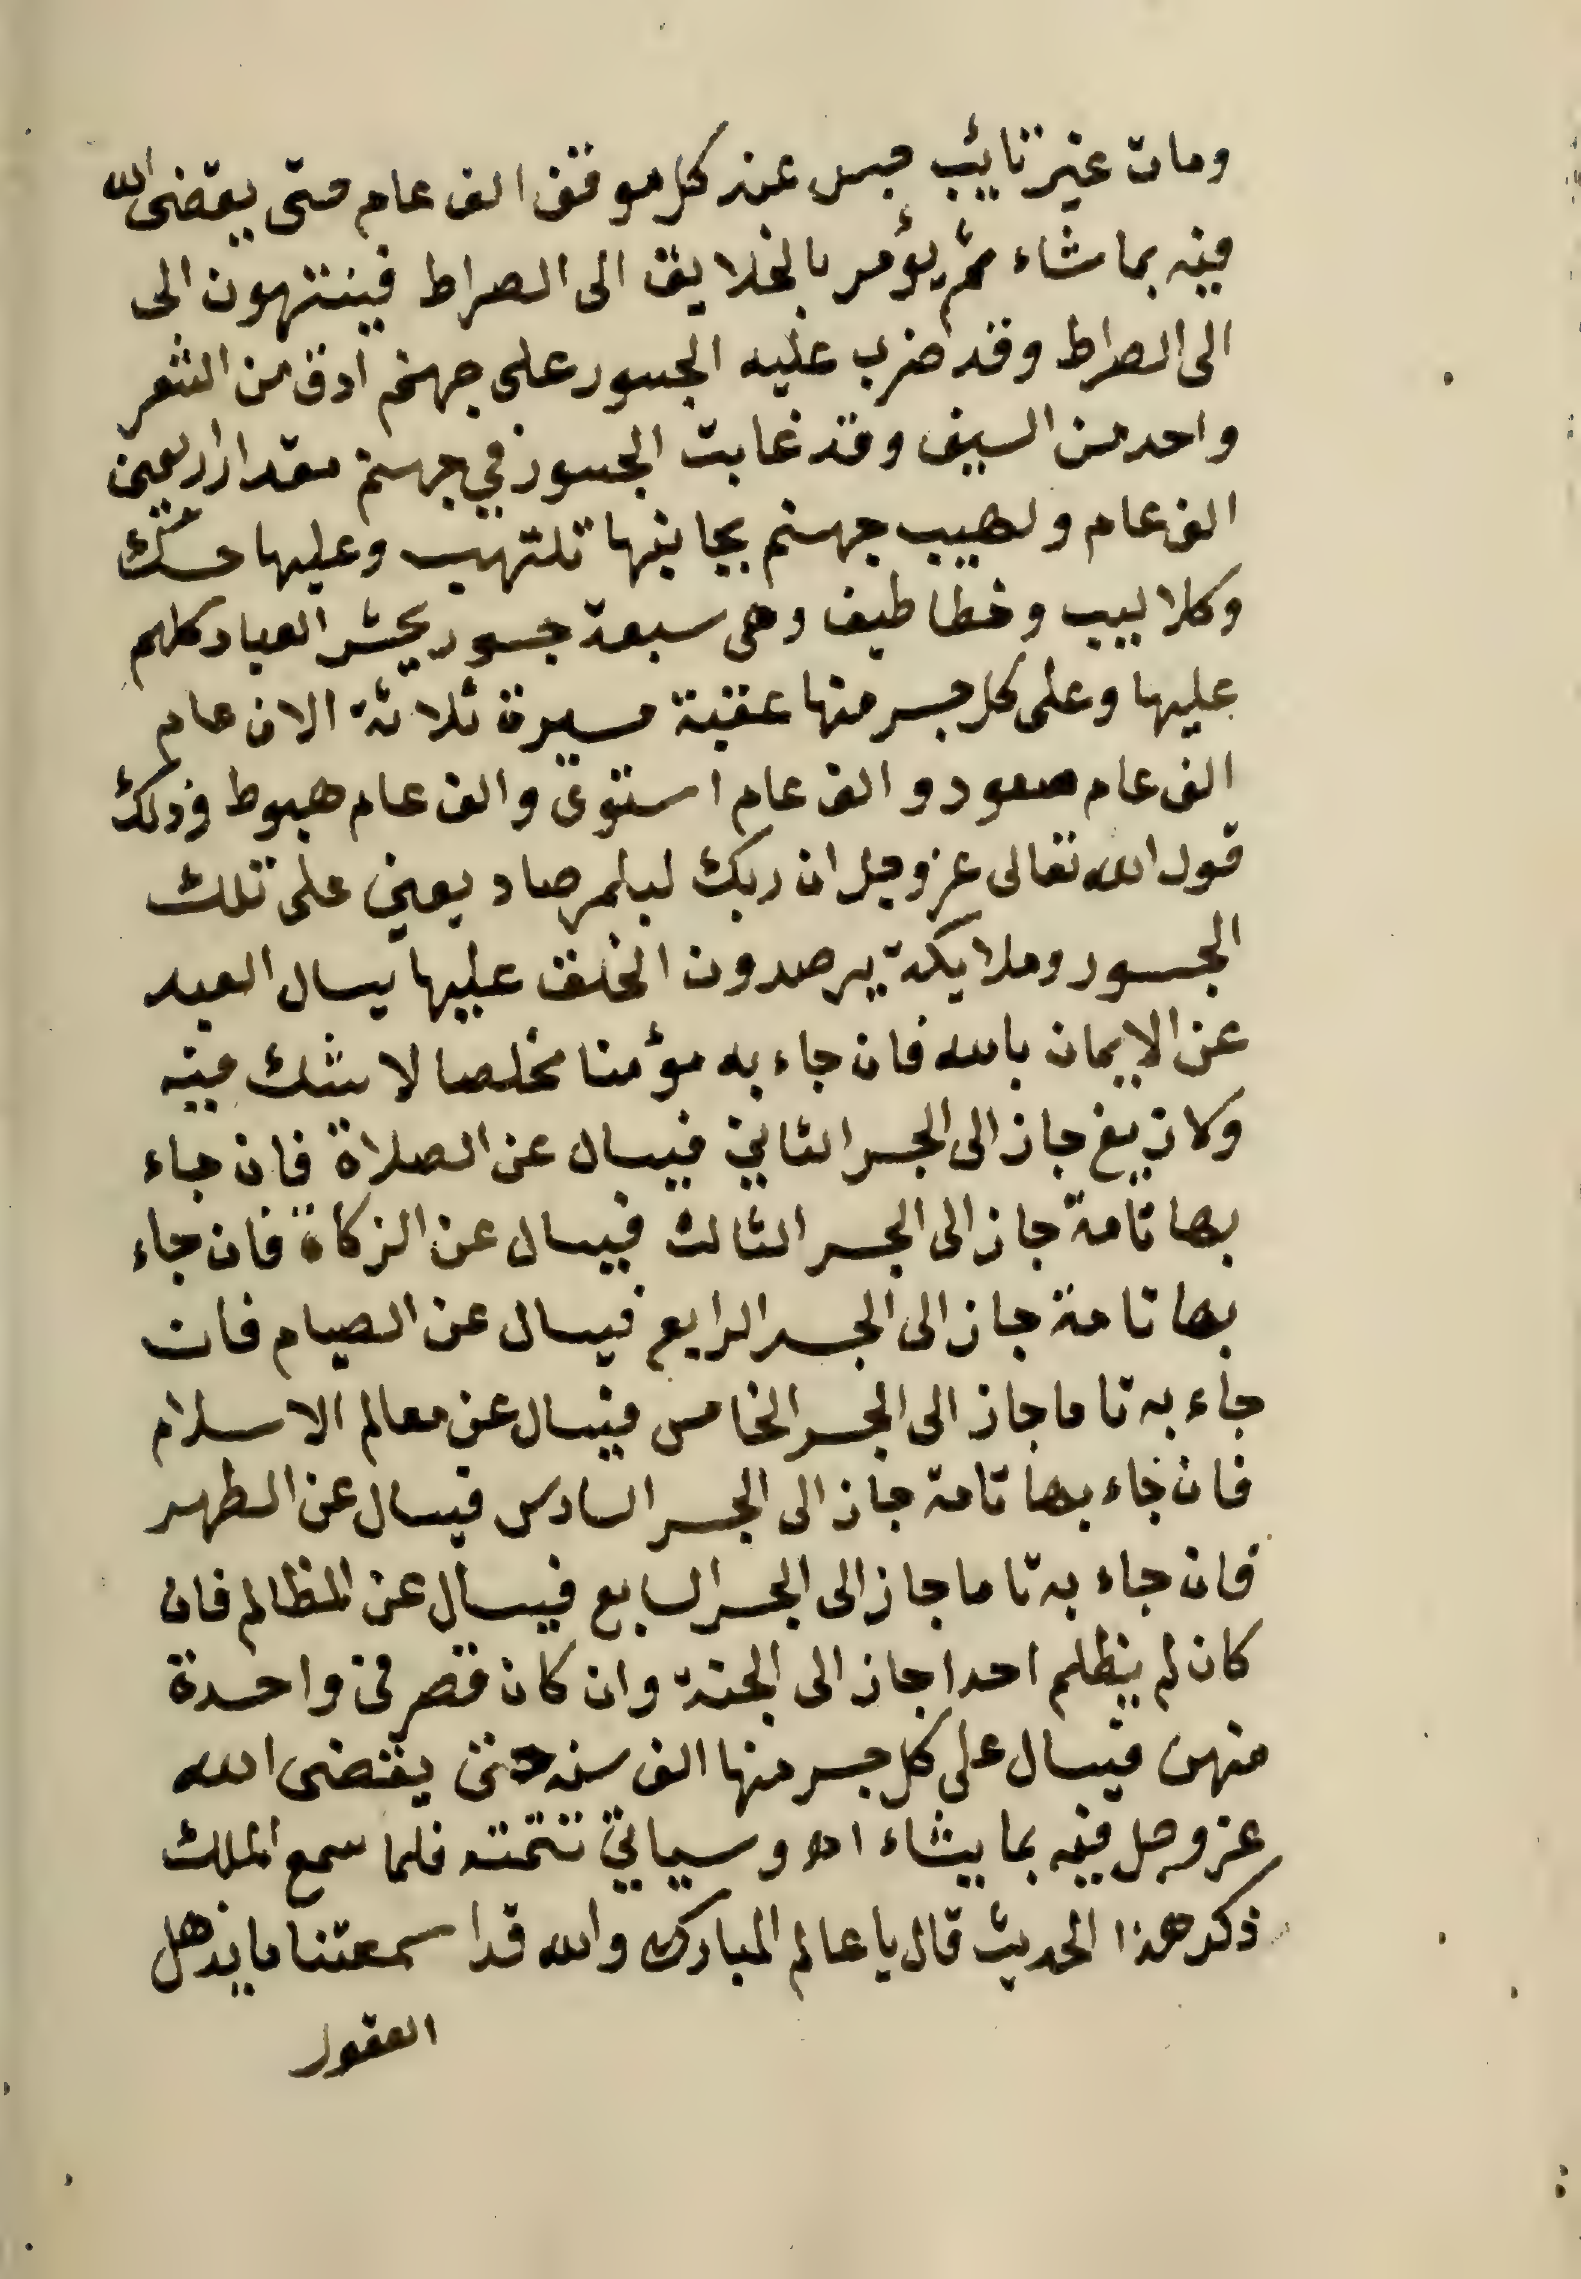 ومات غير تايب حبس عند كل موقف الف عام حتى يقضى الله
فيه بما شاء ثم يؤمر بالخلايق الى الصراط فينتهون الى
الى الصراط وقد ضرب عليه الجسور على جهنم ادق من الشعر
واحد من السيف وقد غابت الجسور في جهنم مقدار اربعين
الف عام ولهيب جهنم بجانبها تلتهب وعليها حسك
وكلاليب وخطاطيف وهى سبعة جسور يحشر العباد كلهم
عليها وعلى كل جسر منها عقبة مسيرة ثلاثة الاف عام
الف عام صعود والف عام استوى والف عام هبوط وذلك
قول الله تعالى عز وجل ان ربك لبلمرصاد يعني على تلك
الجسور وملايكة يرصدون الخلق عليها يسال العبد
عن الايمان بالله فان جاء به مؤمنا مخلصا لا شك فيه
ولا زيغ جاز الى الجسر الثاني فيسال عن الصلاة فان جاء
بها تامة جاز الى الجسر الثالث فيسال عن الزكاة فان جاء
بها تامة جاز الى الجسر الرابع فيسال عن الصيام فان
جاء به تاما جاز الى الجسر الخامس فيسال عن معالم الاسلام
فان جاء بها تامة جاز الى الجسر السادس فيسال عن الطهر
فان جاء به تاما جاز الى الجسر السابع فيسال عن المظالم فان
كان لم يظلم احدا جاز الى الجنة وان كان قصر في واحدة
منهن فيسال على كل جسر منها الف سنه حتى يقضى الله
عز وجل فيه بما يشاء اه وسياتي تتمته فلما سمع الملك
ذكر هذا الحديث قال يا عالم المبارك والله قد اسمعتنا ما يذهل
العقول